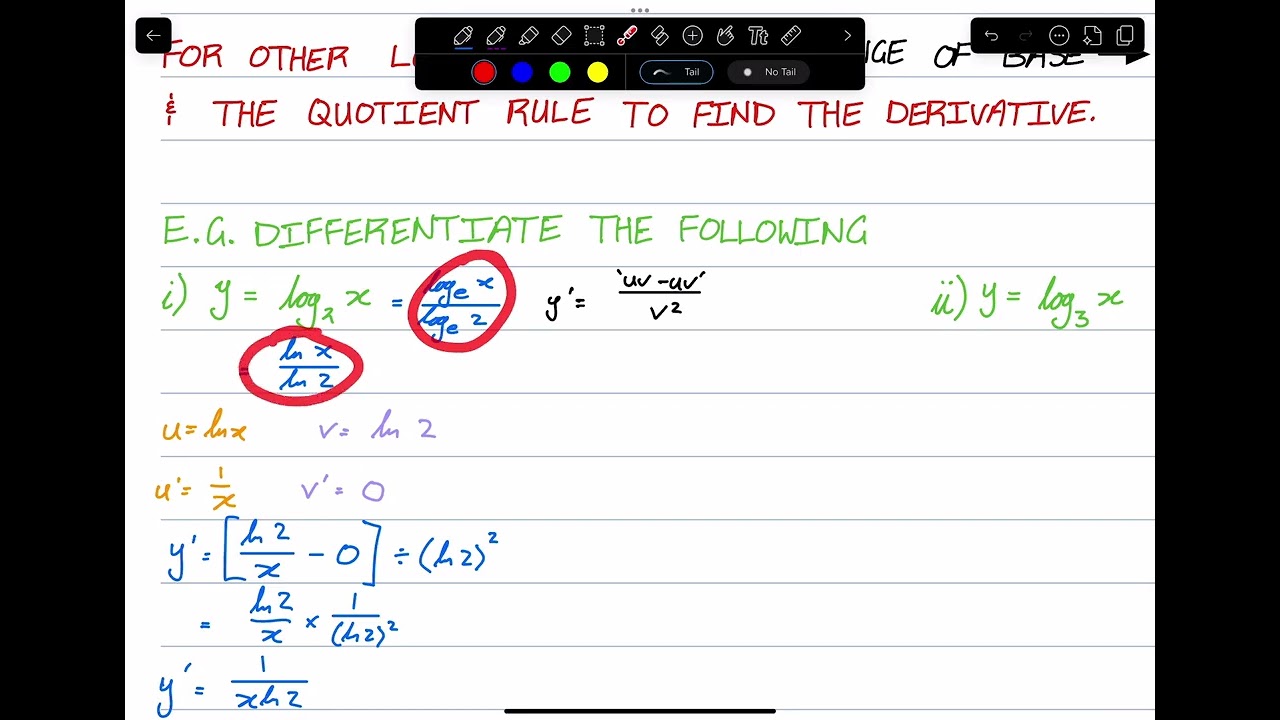 Tt
Tail
No Tail
FOR OTHER
OF BASE
& THE QUOTIENT RULE TO FIND THE DERIVATIVE.
E.G. DIFFERENTIATE THE FOLLOWING
i) y = log₂ x = logₑ x / logₑ 2 y' = 'uv - uv' / v² ii) y = log₃ x
= ln x / ln 2
u = ln x v = ln 2
u' = 1/x v' = 0
y' = [ln 2 / x - 0] ÷ (ln 2)²
= ln 2 / x × 1 / (ln 2)²
y' = 1 / x ln 2